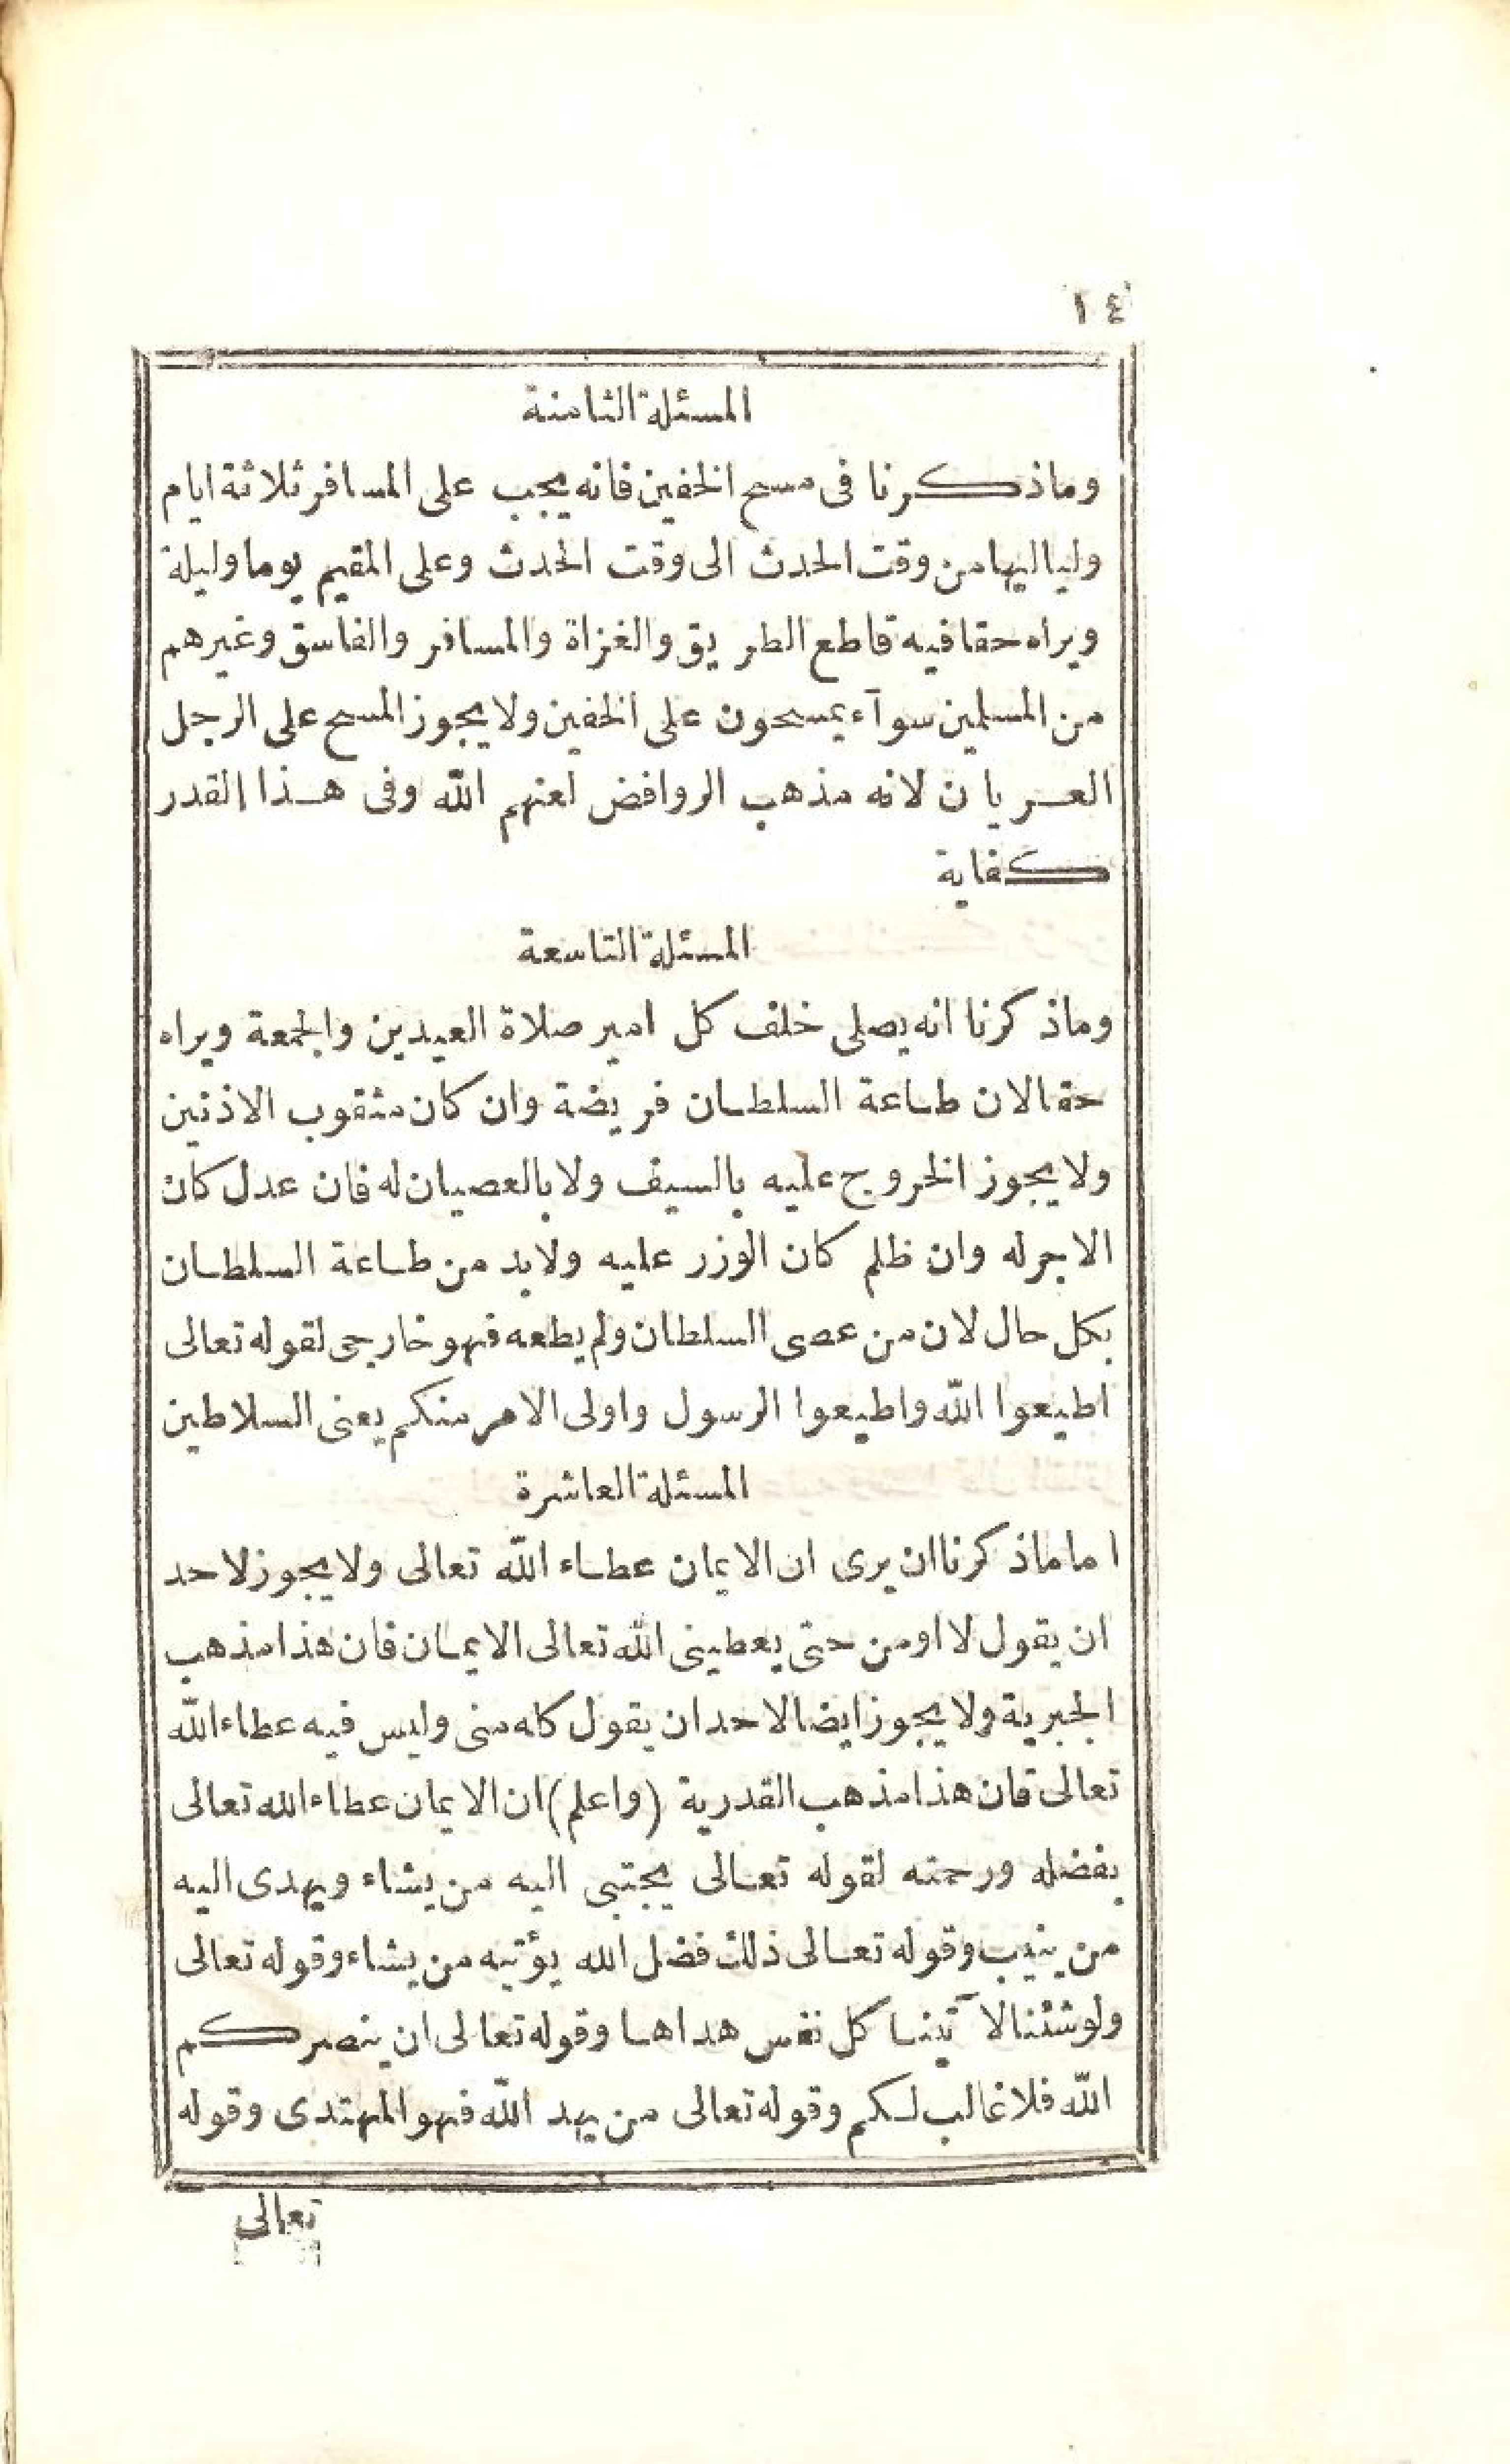 ١٤
المسئلة الثامنة
وما ذكرنا فى مسح الخفين فانه يجب على المسافر ثلاثة ايام
ولياليها من وقت الحدث الى وقت الحدث وعلى المقيم يوما وليلة
ويراه حقا فيه قاطع الطريق والغزاة والمسافر والفاسق وغيرهم
من المسلمين سوآء يمسحون على الخفين ولا يجوز المسح على الرجل
العريان لانه مذهب الروافض لعنهم الله وفى هذا القدر
كفاية
المسئلة التاسعة
وما ذكرنا انه يصلى خلف كل امير صلاة العيدين والجمعة ويراه
حقا لان طاعة السلطان فريضة وان كان مثقوب الاذنين
ولا يجوز الخروج عليه بالسيف ولا بالعصيان له فان عدل كان
الاجر له وان ظلم كان الوزر عليه ولا بد من طاعة السلطان
بكل حال لان من عصى السلطان ولم يطعه فهو خارجى لقوله تعالى
اطيعوا الله واطيعوا الرسول واولى الامر منكم يعنى السلاطين
المسئلة العاشرة
اما ماذكرنا ان يرى ان الايمان عطاء الله تعالى ولا يجوز لاحد
ان يقول لا اومن حتى يعطينى الله تعالى الايمان فان هذا مذهب
الجبرية ولا يجوز ايضا لاحد ان يقول كله منى وليس فيه عطاء الله
تعالى فان هذا مذهب القدرية (واعلم) ان الايمان عطاء الله تعالى
بفضله ورحمته لقوله تعالى يجتبى اليه من يشاء ويهدى اليه
من ينيب وقوله تعالى ذلك فضل الله يؤتيه من يشاء وقوله تعالى
ولو شئنا لآتينا كل نفس هداها وقوله تعالى ان ينصركم
الله فلا غالب لكم وقوله تعالى من يهد الله فهو المهتدى وقوله
تعالى